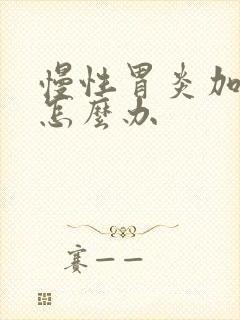 慢性胃炎加
怎麼办
賽一一